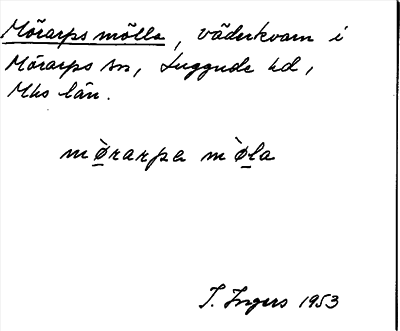 Mörarps mölla, väderkvarn i
Mörarps sn, Luggude hd,
Mhs län.
mø̀rarpa mø̀la
I. Ingers 1953